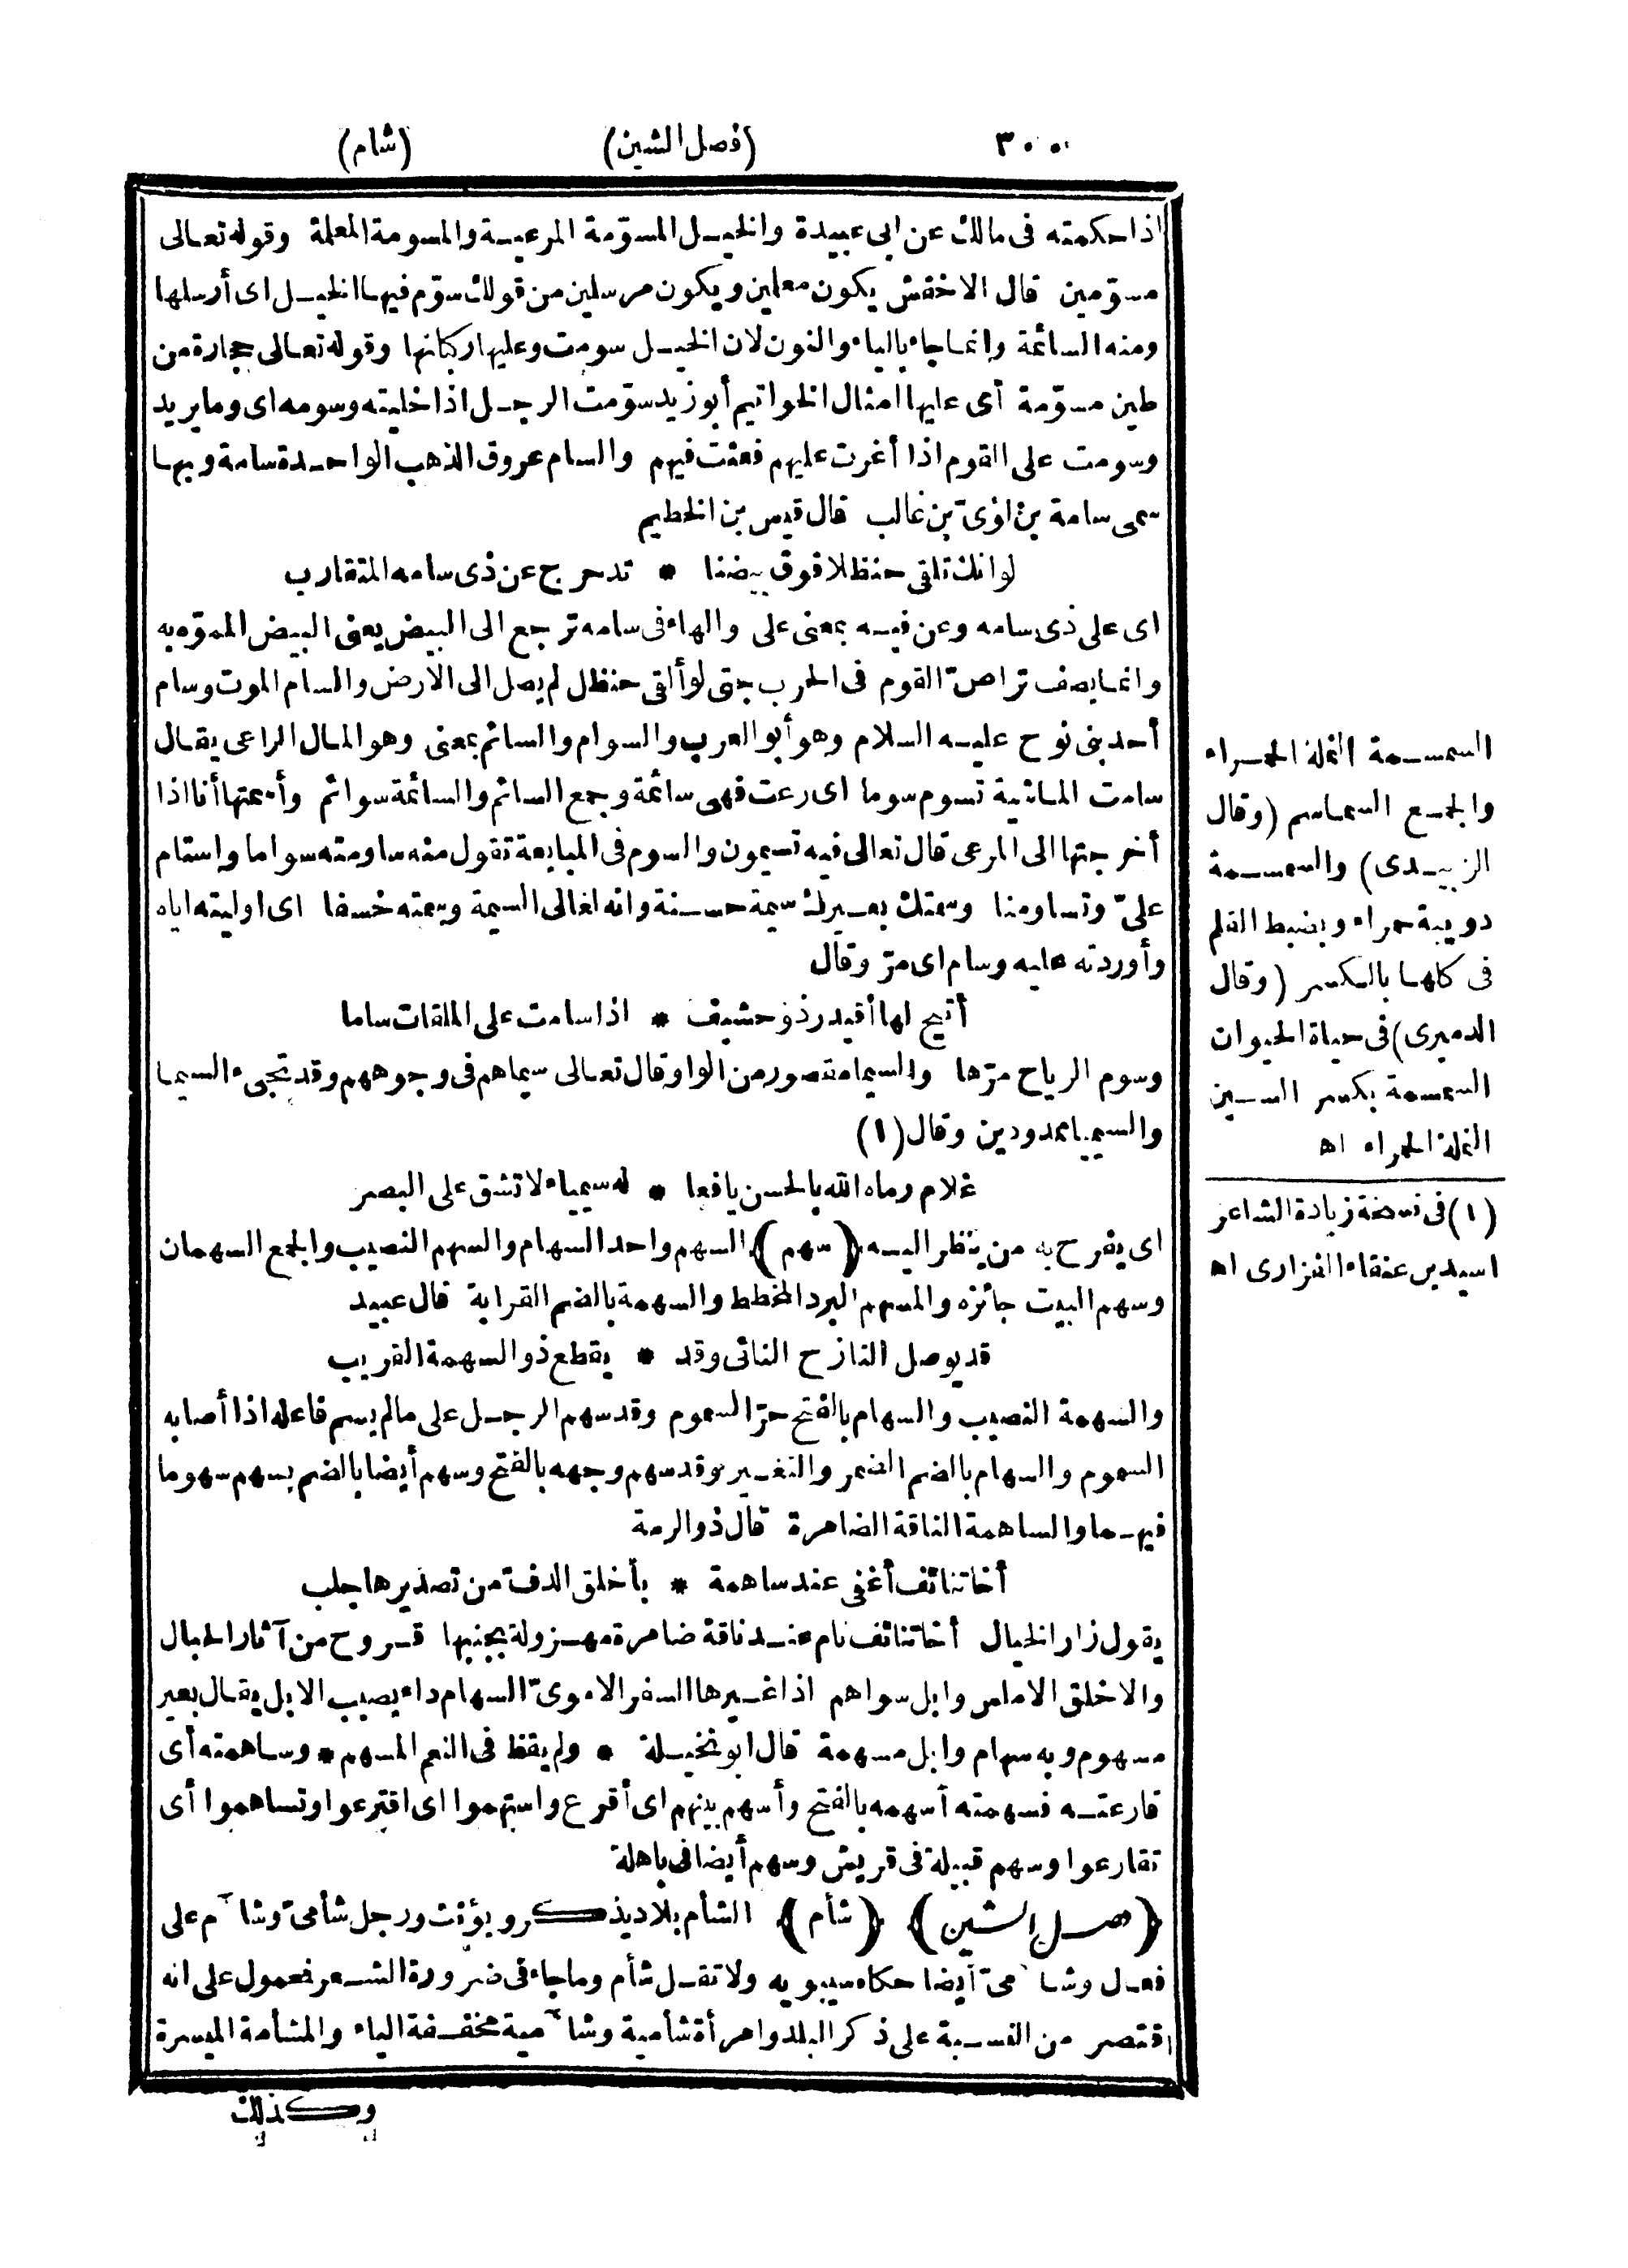 ٣٠٠ (فصل الشين) (شام)
اذا حكمته فى مالك عن ابى عبيدة والخيل المسوّمة المرعية والمسومة المعلمة وقوله تعالى
مسوّمين قال الاخفش يكون معلمين ويكون مرسلين من قولك سوّم فيها الخيل اى أرسلها
ومنه السائمة وانما جاء بالياء والنون لان الخيل سومت وعليها ركبانها وقوله تعالى حجارة من
طين مسوّمة أى عليها امثال الخواتيم أبو زيد سوّمت الرجل اذا خليته وسومه اى وما يريد
وسومت على القوم اذا أغرت عليهم فعثت فيهم والسام عروق الذهب الواحدة سامة وبها
سمى سامة بن لؤىّ بن غالب قال قيس بن الخطيم
لو انك تلقى حنظلا فوق بيضنا * تدحرج عن ذى سامه المتقارب
اى على ذى سامه وعن فيه بمعنى على والهاء فى سامه ترجع الى البيض يعنى البيض المموّه به
وانما يصف تراصّ القوم فى الحرب حتى لو ألقى حنظل لم يصل الى الارض والسام الموت وسام
أحد بنى نوح عليه السلام وهو أبو العرب والسوام والسائم بمعنى وهو المال الراعى يقال
سامت الماشية تسوم سوما اى رعت فهى سائمة وجمع السائم والسائمة سوائم وأسمتها أنا اذا
أخرجتها الى المرعى قال تعالى فيه تسيمون والسوم فى المبايعة تقول منه ساومته سواما واستام
علىّ وتساومنا وسمتك بعيرك سيمة حسنة وانه لغالى السيمة وسمته خسفا اى اوليته اياه
وأوردته عليه وسام اى مرّ وقال
أتيح لها أقيدر ذو حشيف * اذا سامت على الملقات ساما
وسوم الرياح مرّها والسيما مقصور من الواو قال تعالى سيماهم فى وجوههم وقد تجىء السيما
والسيميا ممدودين وقال (١)
غلام رماه الله بالحسن يافعا * له سيمياء لا تشق على البصر
اى يفرح به من ينظر اليه ﴿سهم﴾ السهم واحد السهام والسهم النصيب والجمع السهمان
وسهم البيت جائزه والمسهم البرد المخطط والسهمة بالضم القرابة قال عبيد
قد يوصل النازح النائى وقد * يقطع ذو السهمة القريب
والسهمة النصيب والسهام بالفتح حرّ السموم وقد سهم الرجل على مالم يسم فاعله اذا أصابه
السموم والسهام بالضم الضمر والتغير وقد سهم وجهه بالفتح وسهم أيضا بالضم يسهم سهوما
فيهما والساهمة الناقة الضامرة قال ذو الرمة
أخاتنائف أغفى عند ساهمة * بأخلق الدفّ من تصديرها جلب
يقول زار الخيال أخاتنائف نام عند ناقة ضامرة مهزولة بجنبها قروح من آثار الحبال
والاخلق الاملس وابل سواهم اذا غيرها السفر الاموىّ السهام داء يصيب الابل يقال بعير
مسهوم وبه سهام وابل مسهمة قال ابو نخيلة * ولم يقظ فى النعم المسهم * وساهمته أى
قارعته فسهمته أسهمه بالفتح وأسهم بينهم اى أقرع واستهموا اى اقترعوا وتساهموا أى
تقارعوا وسهم قبيلة فى قريش وسهم أيضا فى باهلة
﴿فصل الشين﴾ ﴿شأم﴾ الشأم بلاد يذكر ويؤنث ورجل شأمىّ وشآم على
فعال وشآمىّ أيضا حكاه سيبويه ولا تقل شأم وما جاء فى ضرورة الشعر فمحمول على انه
اقتصر من النسبة على ذكر البلد وامرأة شأمية وشآمية مخففة الياء والمشأمة الميسرة
وكذلك
السمسمة النملة الحمراء
والجمع السماسم (وقال
الزبيدى) والسمسمة
دويبة حمراء وبضبط القلم
فى كلها بالكسر (وقال
الدميرى) فى حياة الحيوان
السمسمة بكسر السين
النملة الحمراء اه
(١) فى نسخة زيادة الشاعر
اسيد بن عنقاء الفزارى اه